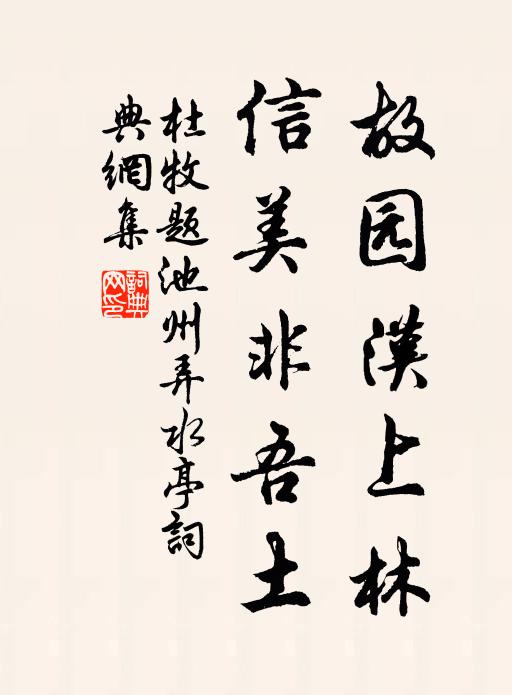 故园漢上林
信美非吾土
杜牧题池州弄水亭詞
典網集
詞典
网印